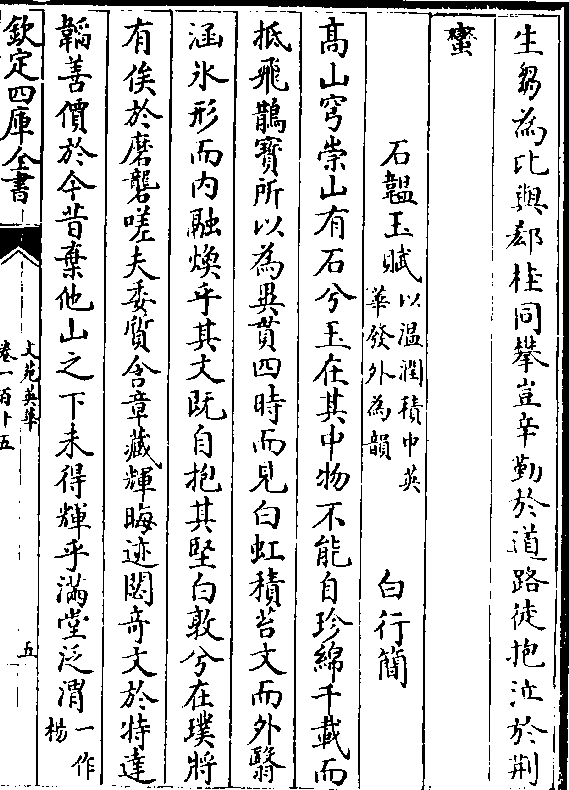 生芻為比與郄桂同攀豈辛勤於道路徒抱泣於荆
蠻
石韞玉賦以温潤積中英華發外為韻
白行簡
髙山穹崇山有石兮玉在其中物不能自珍綿千載而
抵飛鵲寳所以為異貫四時而見白虹積苔文而外翳
涵氷形而内融煥乎其文既自抱其堅白敦兮在璞將
有俟於磨礱嗟夫委質含章藏輝晦迹閟竒文於特達
韜善價於今昔棄他山之下未得輝乎滿堂泛渭一作楊
欽定四庫全書
文苑英華
卷一百十五
五